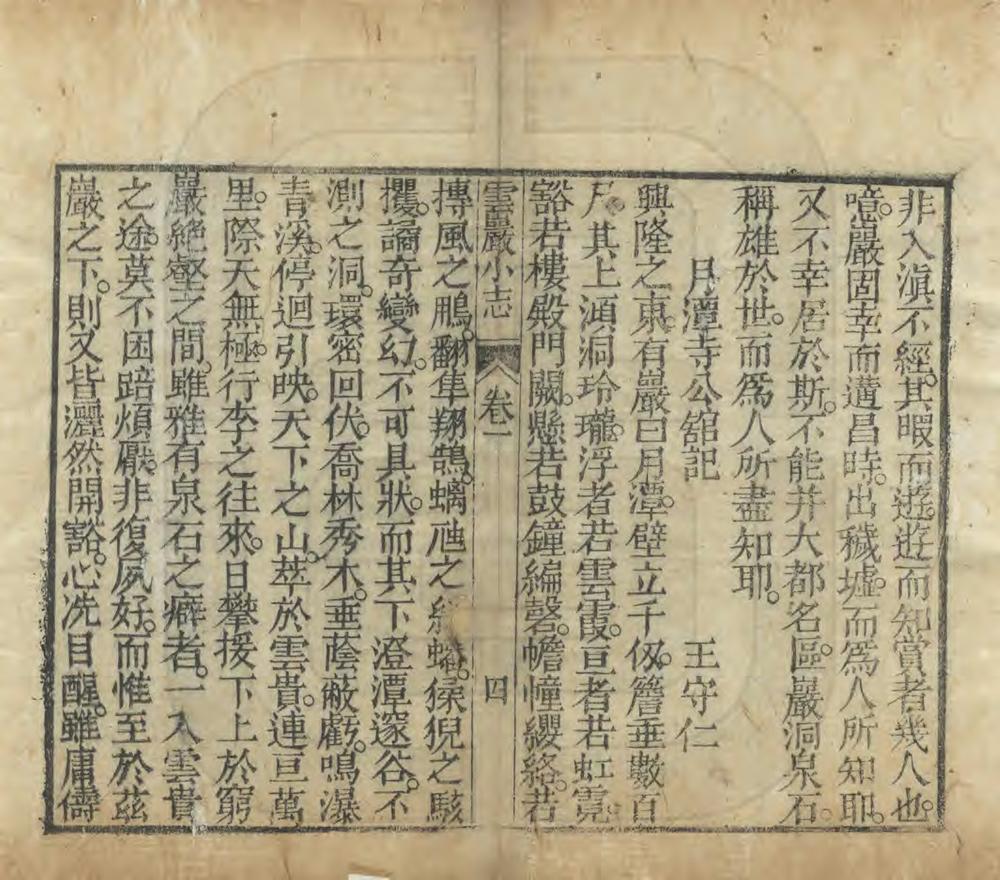 非入滇不經其暇而遊遊而知賞者幾人也。
噫巖固幸而遘昌時。出穢墟。而爲人所知耶。
又不幸居於斯。不能并大都名區。巖洞泉石。
稱雄於世。而爲人所盡知耶。
月潭寺公舘記 王守仁
興隆之東。有巖曰月潭。壁立千仭。簷垂數百
尺。其上澒洞玲瓏。浮者若雲霞。亘者若虹霓。
豁若樓殿門闕。懸若鼓鐘編磬。幨幢纓絡。若
雲巖小志 卷一 四
摶風之鵬。翻隼翔鵠。螭虺之 蟠。猱猊之駭
攫。譎奇變幻。不可具狀。而其下澄潭邃谷。不
測之洞。環密回伏。喬林秀木。垂蔭蔽虧。鳴瀑
青溪。停迴引映。天下之山。萃於雲貴。連亘萬
里。際天無極。行李之往來。日攀援下上於窮
巖絕壑之間。雖雅有泉石之癖者。一入雲貴
之途。莫不困踣煩厭。非復夙好。而惟至於茲
巖之下。則又皆灑然開豁。心洗目醒。雖庸儔